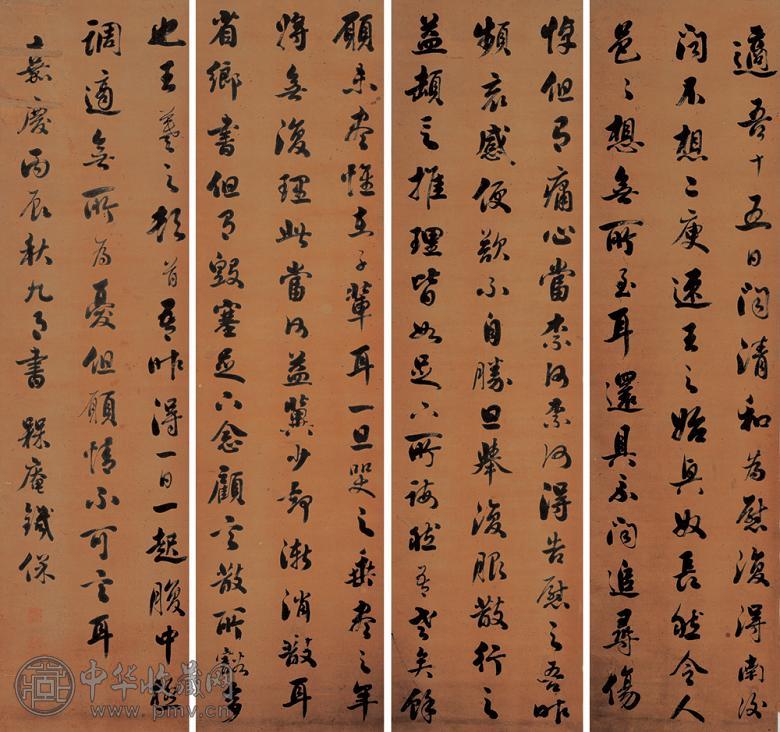 適吾十五日問清和為慰復得南後
問不想二庾速王之始與奴長愁令人
邑邑想無所至耳還具示問追尋傷
悼但有痛心當柰何柰何得告慰之吾昨
頻哀感便欲不自勝旦舉復服散行之
益頓之推理皆如足下所誨然吾老矣餘
願未盡惟在子輩耳一旦哭之垂盡之年
將無復理此當何益冀少卻漸消散耳
省卿書但有毀塞足下念顧言散所豁多
也王羲之頓首吾昨得一日一起腹中極
調適無所為憂但願情不可言耳
嘉慶丙辰秋九月書 槑庵鐵保
中华收藏网
www.pmv.cn